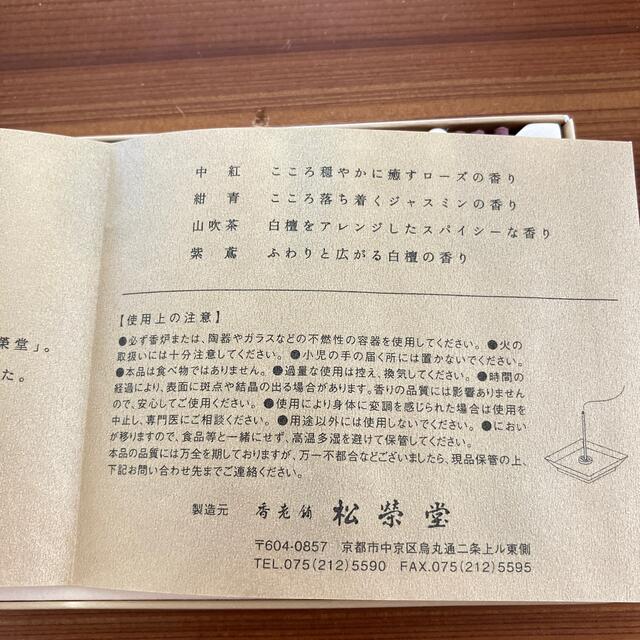 中紅 こころ穏やかに癒すローズの香り
紺青 こころ落ち着くジャスミンの香り
山吹茶 白檀をアレンジしたスパイシーな香り
紫鳶 ふわりと広がる白檀の香り
【使用上の注意】
●必ず香炉または、陶器やガラスなどの不燃性の容器を使用してください。●火の
取扱いには十分注意してください。●小児の手の届く所には置かないでください。
●本品は食べ物ではありません。●過量な使用は控え、換気してください。●時間の
経過により、表面に斑点や結晶の出る場合があります。香りの品質には影響ありません
ので、安心してご使用ください。●使用により身体に変調を感じられた場合は使用を
中止し、専門医にご相談ください。●用途以外には使用しないでください。●におい
が移りますので、食品等と一緒にせず、高温多湿を避けて保管してください。
本品の品質には万全を期しておりますが、万一不都合などございましたら、現品保管の上、
下記お問い合わせ先までご連絡ください。
製造元 香老舗 松榮堂
〒604-0857 京都市中京区烏丸通二条上ル東側
TEL.075(212)5590 FAX.075(212)5595
榮堂」。
た。